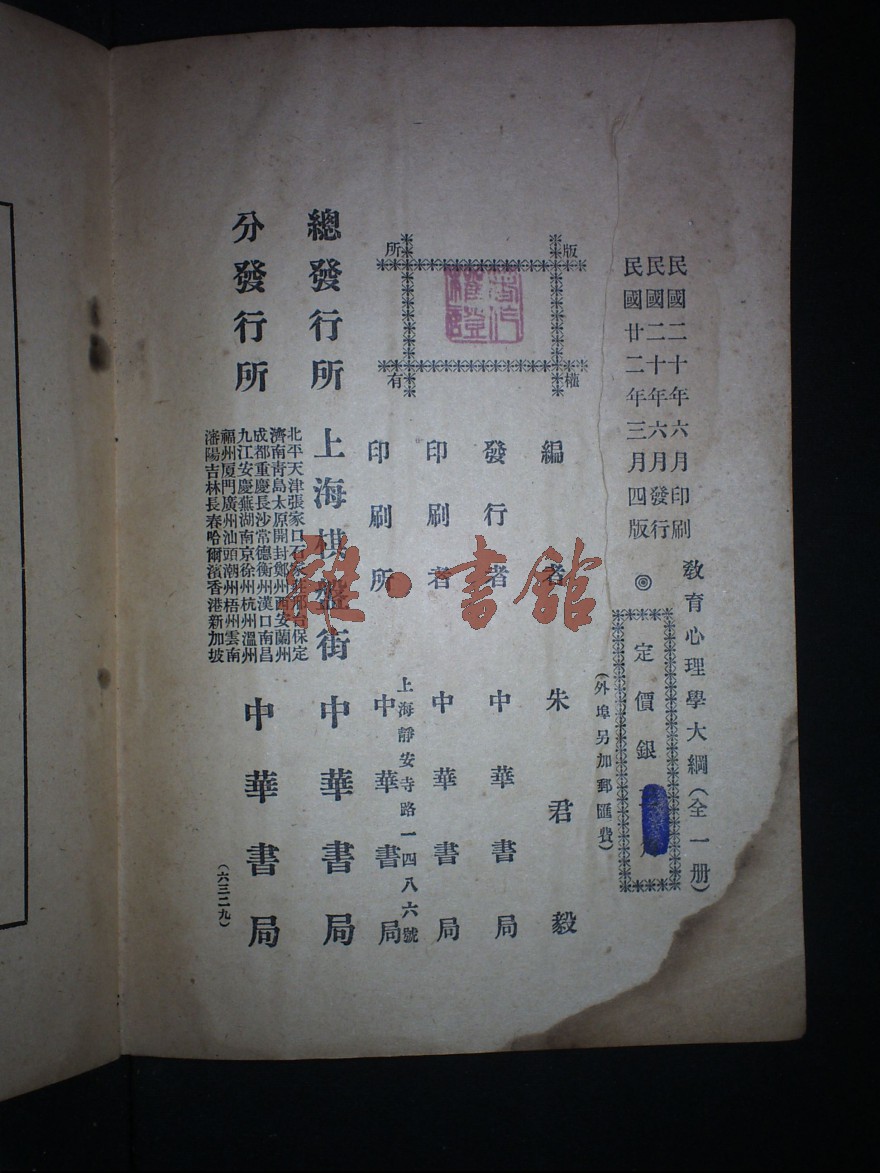 民國二十年六月印刷
民國二十年六月發行
民國廿二年三月四版
教育心理學大綱(全一册)
◎定價銀
(外埠另加郵匯費)
版權所有
編者 朱君毅
發行者 中華書局
印刷者 中華書局
上海靜安寺路一四八六號
印刷所 中華書局
總發行所 上海棋盤街 中華書局
分發行所 中華書局
北平天津張家口石家莊邢台保定
濟南青島太原開封鄭州西安蘭州
成都重慶長沙常德衡州漢口南昌
九江安慶蕪湖南京徐州杭州溫州
福州厦門廣州汕頭潮州梧州雲南
瀋陽吉林長春哈爾濱香港新加坡
(六三二九)
雜·書館